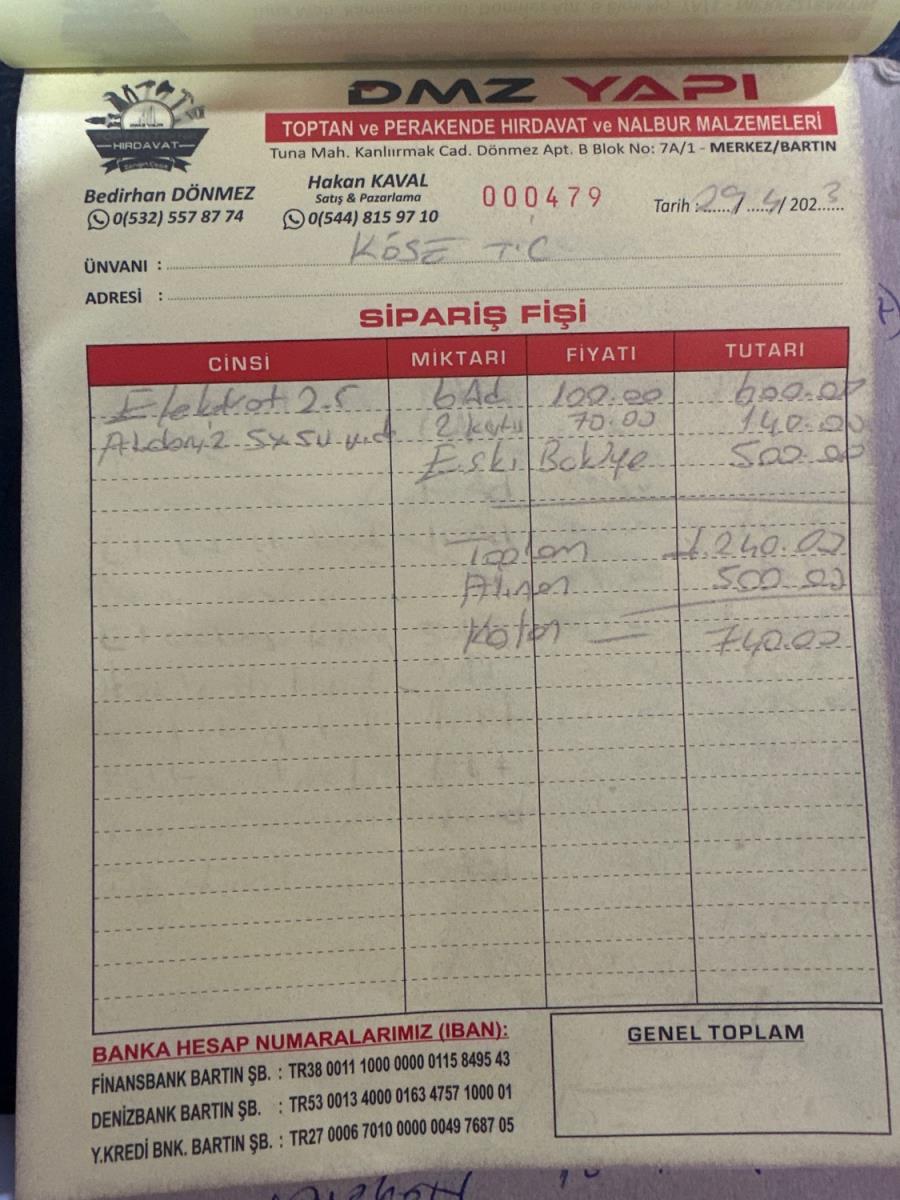 HIRDAVAT
DMZ YAPI
TOPTAN ve PERAKENDE HIRDAVAT ve NALBUR MALZEMELERİ
Tuna Mah. Kanlıırmak Cad. Dönmez Apt. B Blok No: 7A/1 - MERKEZ/BARTIN
Bedirhan DÖNMEZ
0(532) 557 87 74
Hakan KAVAL
Satış & Pazarlama
0(544) 815 97 10
000479
Tarih : 29 / 4 / 2023
ÜNVANI : KÖSE TİC
ADRESİ :
SİPARİŞ FİŞİ
CİNSİ MİKTARI FİYATI TUTARI
Elektrot 2.5 6 Ad 100.00 600.00
5x50 2 kutu 70.00 140.00
Eski Bakiye 500.00
Toplam 1.240.00
Alınan 500.00
Kalan — 740.00
BANKA HESAP NUMARALARIMIZ (IBAN):
FİNANSBANK BARTIN ŞB. : TR38 0011 1000 0000 0115 8495 43
DENİZBANK BARTIN ŞB. : TR53 0013 4000 0163 4757 1000 01
Y.KREDİ BNK. BARTIN ŞB. : TR27 0006 7010 0000 0049 7687 05
GENEL TOPLAM